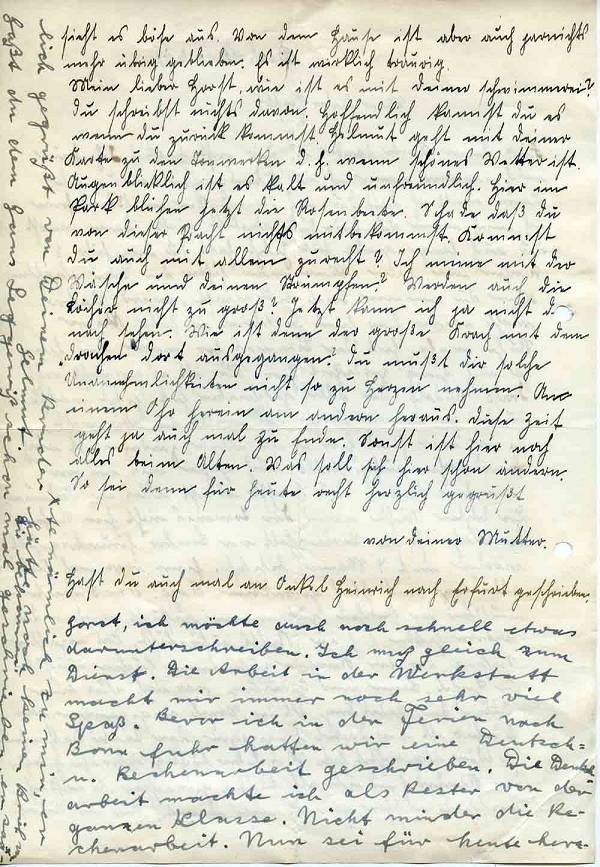 sieht es böse aus. Von dem Hause ist aber auch garnichts
mehr übrig geblieben. Es ist wirklich traurig.
Mein lieber Horst, wie ist es mit deiner Schwimmerei?
Du schreibst nichts davon. Hoffendlich kannst du es
wenn du zurück kommst. Helmut geht mit deiner
Karte zu den d. h. wenn schönes Wetter ist.
Augenblicklich ist es kalt und unfreundlich. Hier im
Park blühen jetzt die Rosenbeete. Schade daß du
von dieser Pracht nichts mitbekommst. Kommst
du auch mit allem zurecht? Ich meine mit der
Wäsche und deinen Strümpfen? Werden auch die
Löcher nicht zu groß? Jetzt kann ich ja nicht d.
nach sehen. Wie ist denn der große Krach mit dem
"Drachen" dort ausgegangen? Du mußt dir solche
Unannehmlichkeiten nicht so zu Herzen nehmen. An
einem Ohr herein am andern heraus. Diese Zeit
geht ja auch mal zu Ende. Sonst ist hier noch
alles beim Alten. Was soll sich hier schon ändern.
So sei denn für heute recht herzlich gegrüßt
von deiner Mutter.
Hast du auch mal an Onkel Heinrich nach Erfurt geschrieben.
Horst, ich möchte auch noch schnell etwas
darunterschreiben. Ich muß gleich zum
Dienst. Die Arbeit in der Werkstatt
macht mir immer noch sehr viel
Spaß. Bevor ich in den Ferien nach
Bonn fuhr hatten wir eine Deutsch-
u. Rechenarbeit geschrieben. Die Deutsch
arbeit machte ich als Bester von der
ganzen Klasse. Nicht minder die Re-
chenarbeit. Nun sei für heute herz-
lich gegrüßt von Deinem Bruder
Helmut.
Hast du dem Hans schon mal geschrieben, er sa
te nämlich zu mir, er
hätte noch keinen